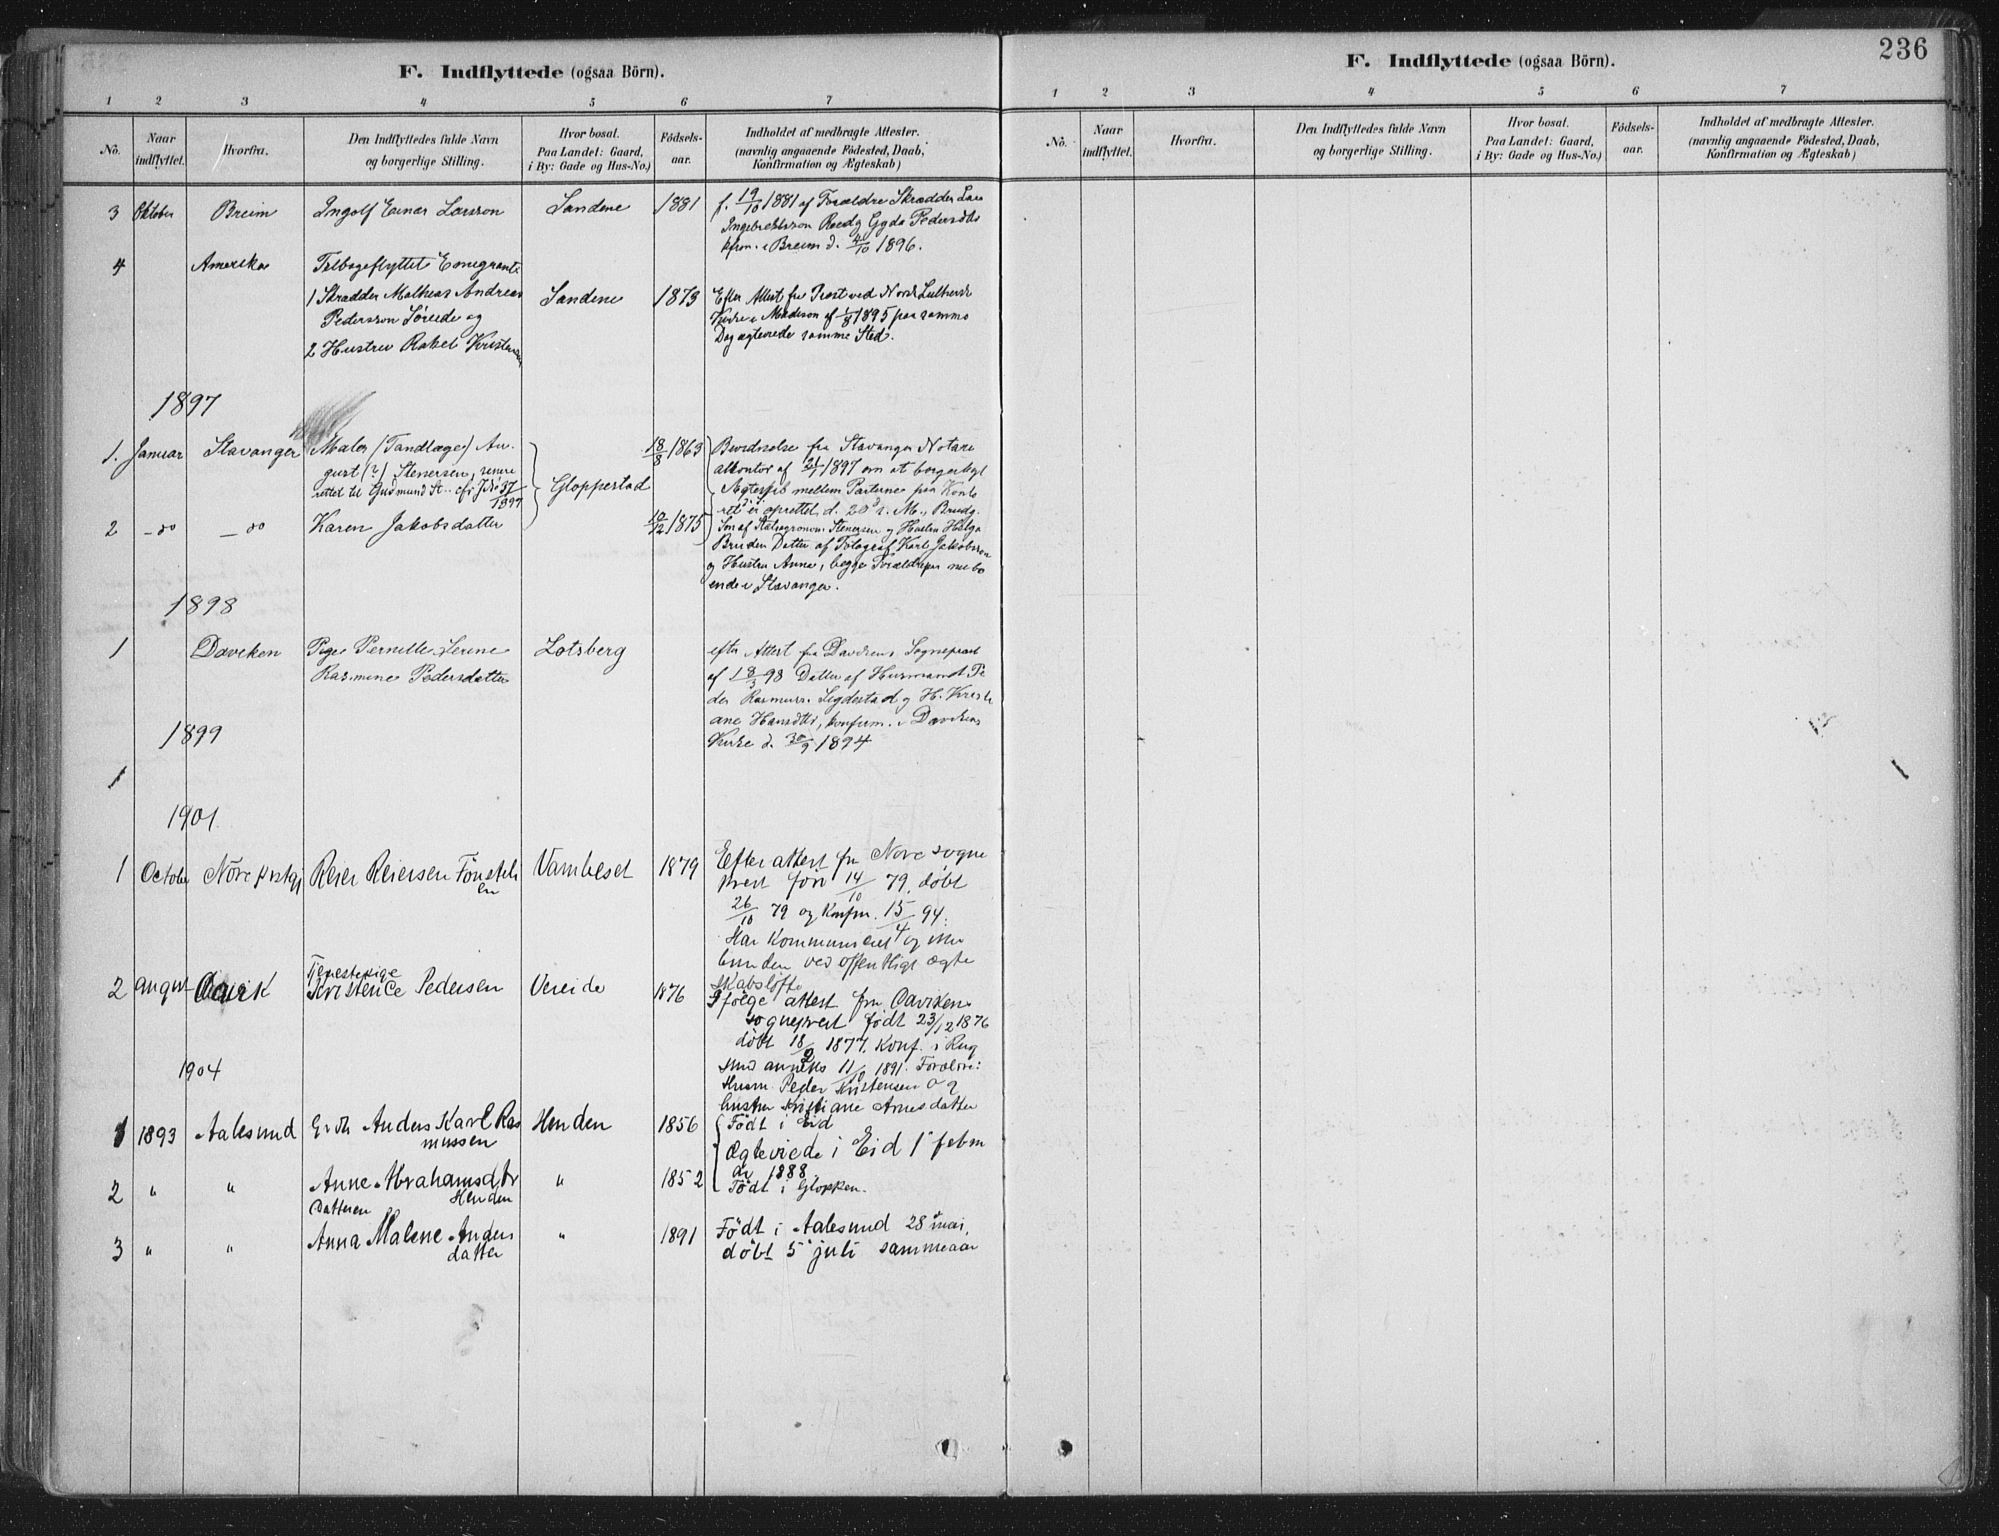 F. Indflyttede (ogsaa Börn).
1 2 3 4 5 6 7
No. Naar indflyttet. Hvorfra. Den Indflyttedes fulde Navn og borgerlige Stilling. Hvor bosat. Paa Landet: Gaard, i By: Gade og Hus-No.) Fødsels-aar. Indholdet af medbragte Attester. (navnlig angaaende Födested, Daab, Konfirmation og Ægteskab)
3 Oktober Breim Ingolf Einar Larsson Sandene 1881 f. 19/10 1881 af Forældre Skrædder Lars
Ingebrektsson Roed og Gyda Pedersdtr
kfrm. i Breim d. 4/10 1896.
4 Amerika Tilbageflyttet Emigrant:
1 Skrædder Mathias Andreas Sandene 1873 Efter Attest fra Præst ved Norsk Luthersk
Pedersson Söreide og Kirke i Madison af 1/8 1895 paa samme
2 Hustru Rakel Kristensen Dag ægteviede samme Sted.
1897
1. Januar Stavanger Maler (Tandlæge) Au- 18/8 1863 Bevidnelse fra Stavanger Notari
gust (?) Stenersen, senere Gloppestad alkontor af 21/1 1897 om at borgerligt
rettet til Gudmund St. cfr JNo 37/1897 Ægteskab mellem Parterne paa Konto
ret er oprettet d. 20 s. M., Brudg.
2 - do - do Karen Jakobsdatter 10/12 1875 Son af Statsagronom Stenersen og Hustru Helga
Bruden Datter af Fotograf Karl Jakobsson
og Hustru Anne, begge Forældrepar nu bo
ende i Stavanger.
1898
1 Daviken Pige Pernille Serine Lotsberg efter Attest fra Davikens Sognepræst
Rasmine Pedersdatter af 18/3 98 Datter af Husmand Pe
der Rasmuss. Sigdestad og H. Kristi
ane Hansdtr, konfirm. i Davikens
Kirke d. 30/9 1894
1899
1
1901
1 October Nore prstgj Reier Reiersen Fönsteli Vambeset 1879 Efter attest fra Nore sogne
en prest föri 14/10 79, döbt
26/10 79 og konfm. 15/4 94.
Har kommuniceret og ube
bunden ved offentligt ægte
skabslöfte
2 august Davik Tjenestepige
Kristence Pedersen Vereide 1876 Ifölge attest fra Davikens
sogneprest födt 23/12 1876
döbt 18/2 1877. Konf. i Rug
sund anneks 11/10 1891. Forældre:
1904
Husm. Peder Kristensen og
hustru Kristiane Arnesdatter
1 1893 Aalesund Grdb Anders Karl Ras Henden 1856 Födt i Eid
mussen Ægteviede i Eid 1 febru
ar 1888.
2 " " Anne Abrahamsdtr " 1852 Födt i Gloppen.
Henden
Datteren
3 " " Anna Malene Anders " 1891 Födt i Aalesund 28 mai,
datter döbt 5 juli sammeaar
236
F. Indflyttede (ogsaa Börn).
1 2 3 4 5 6 7
No. Naar indflyttet. Hvorfra. Den Indflyttedes fulde Navn og borgerlige Stilling. Hvor bosat. Paa Landet: Gaard, i By: Gade og Hus-No.) Födsels-aar. Indholdet af medbragte Attester. (navnlig angaaende Födested, Daab, Konfirmation og Ægteskab)